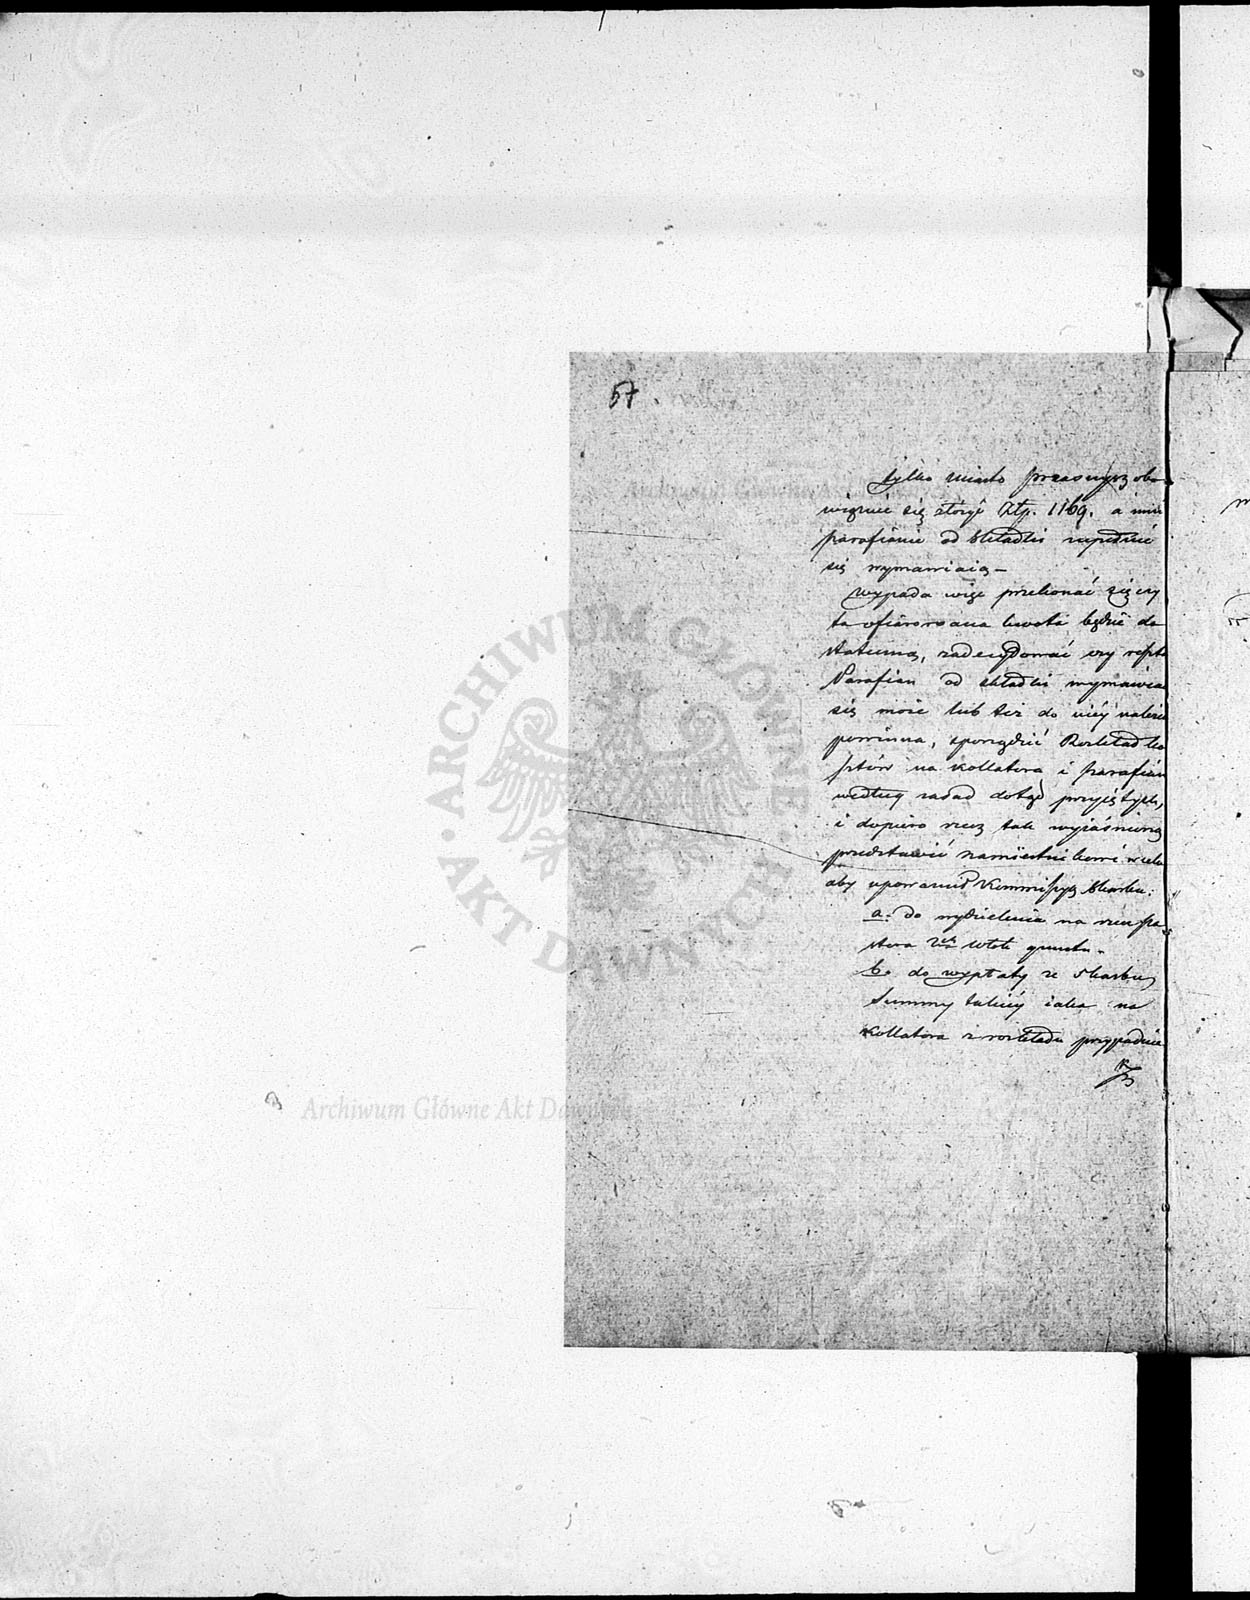 57
tylko miasto Przasnysz obo
wiązuie się złożyć Złp. 1169. a inni
parafianie od składki zupełnie
się wymawiaią—
Wypada więc przekonać się czy
ta ofiarowana kwota będzie do
stateczną, zadecydować czy reszta
Parafian od składki wymawiać
się może lub też do niéy należeć
powinna, sporządzić Rozkład ko
sztów na kollatora i parafian
według zasad dotąd przyiętych,
i dopiero rzecz tak wyiaśnioną
przedstawić Namiestnikowi w celu
aby upoważnił Kommissyą Skarbu:
a. do wydzielenia na rzecz pa
stora włók gruntu.
b. do wypłaty ze Skarbu
Summy takiéy iaka na
Kollatora z rozkładu przypadnie
ARCHIWUM GŁÓWNE
AKT DAWNYCH
Archiwum Główne Akt Dawnych